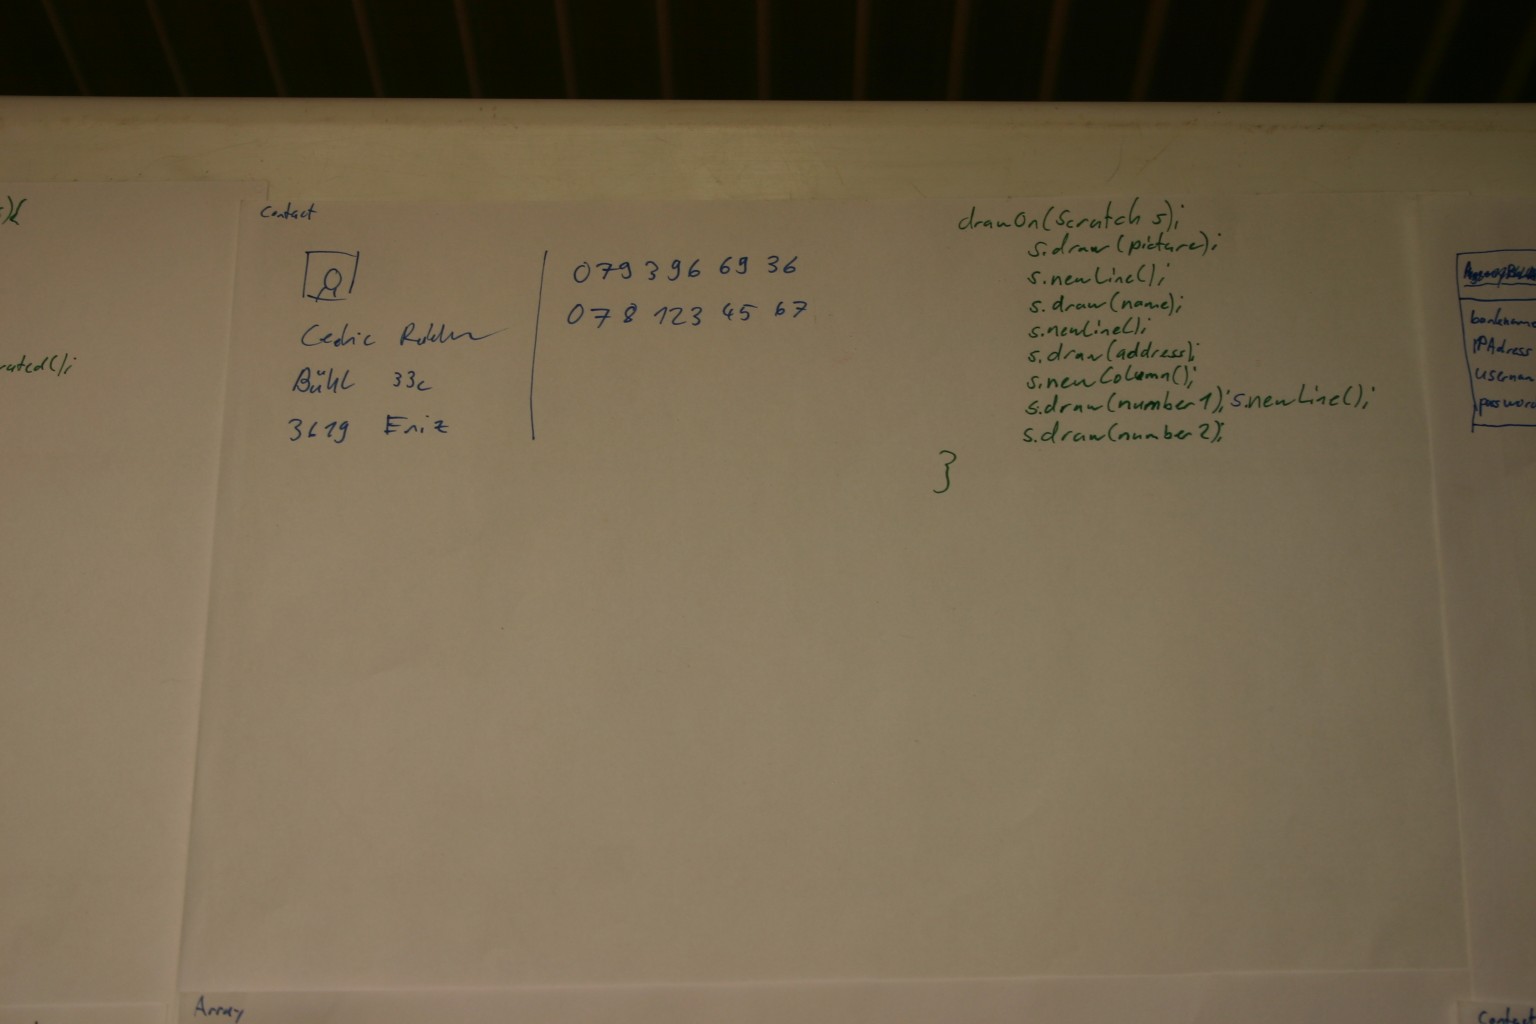 ){
rated();
Contact
Cedric
Bühl 33c
3619 Eriz
079 396 69 36
078 123 45 67
drawOn(Scratch s);
s.draw(picture);
s.newLine();
s.draw(name);
s.newLine();
s.draw(address);
s.newColumn();
s.draw(number1); s.newLine();
s.draw(number2);
}
bankname
IPAdress
usernam
passwor
Array
Contact